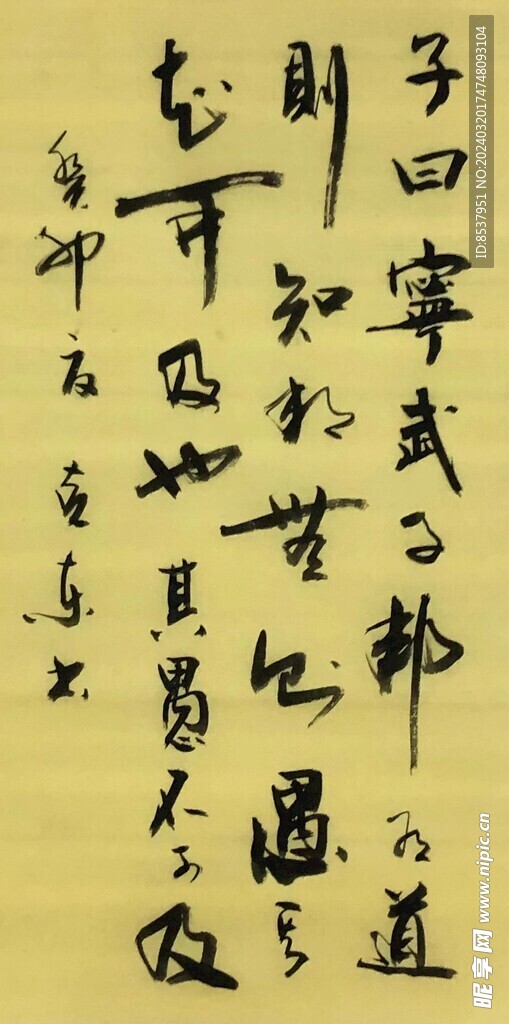 子曰寧武子邦有道
則知邦無则愚其
知可及也其愚不可及
癸卯夏 克东书
ID:8537951 NO:20240320174748093104
昵享网 www.nipic.cn